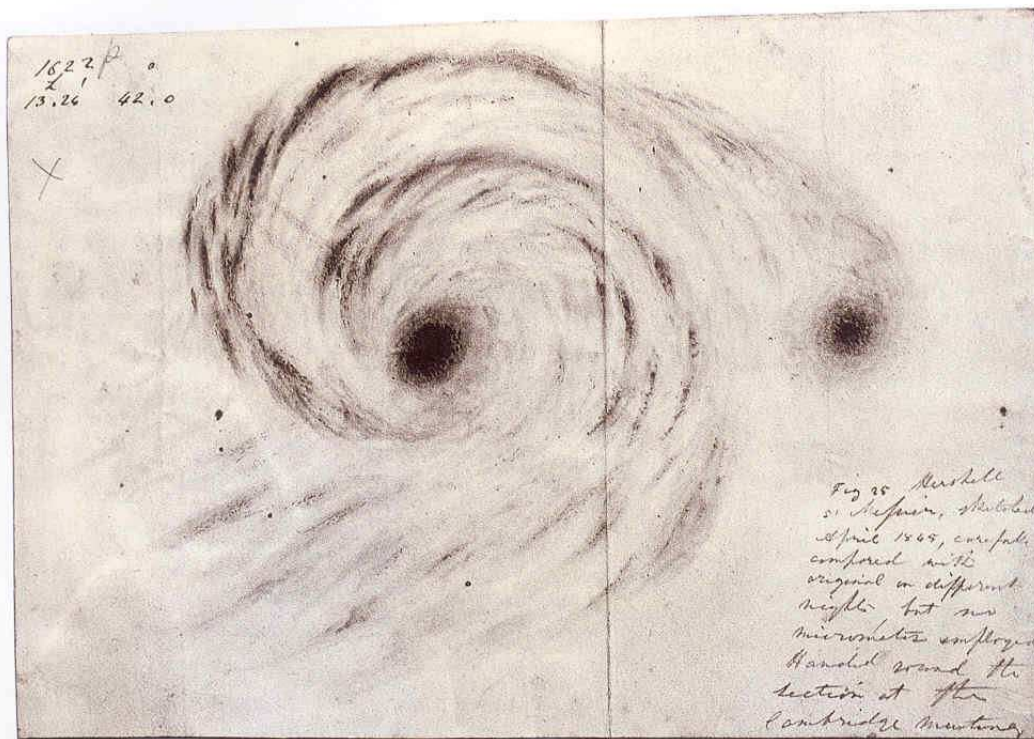 1622 β
h '
13.26 42.0
Fig 25 Herschell
51 Messier, sketched
April 1845, carefully
compared with
original on different
nights, but no
micrometer employed
Handed round the
section at the
Cambridge meeting